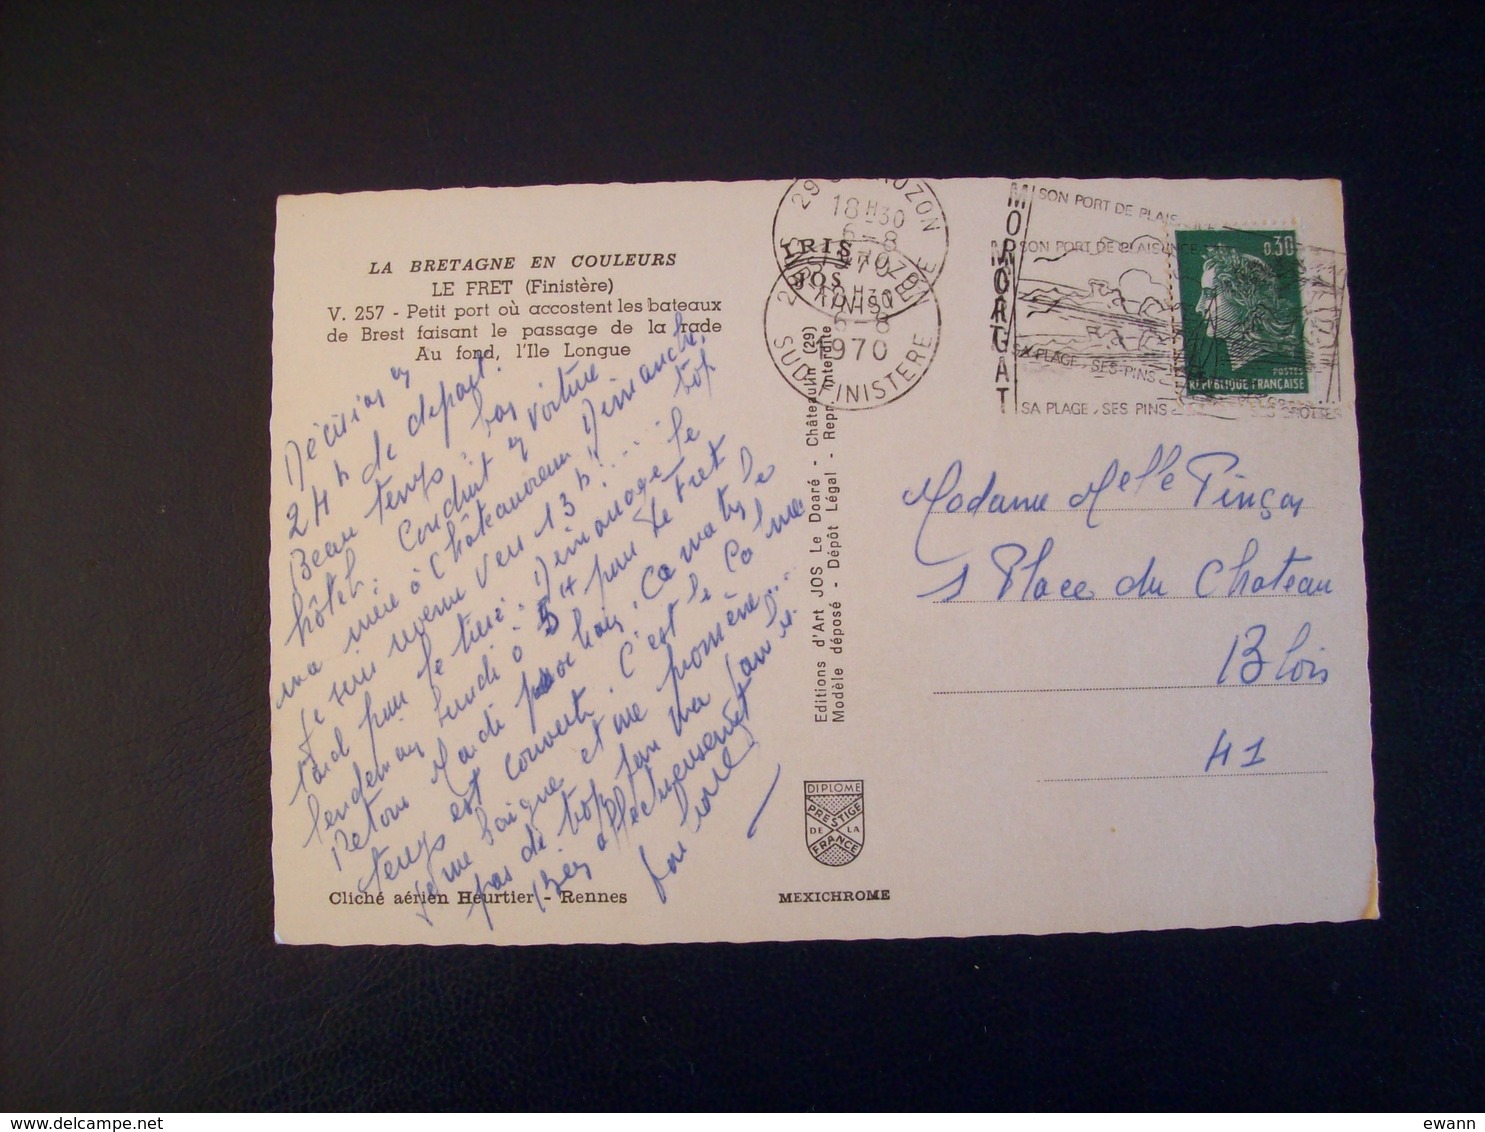 LA BRETAGNE EN COULEURS
LE FRET (Finistère)
V. 257 - Petit port où accostent les bateaux
de Brest faisant le passage de la rade
Au fond, l'Ile Longue
Décision en
24 h de départ.
Beau temps, pas
hôtel. Conduit en voiture
ma mère à Châteauroux Dimanche,
Je suis revenue vers 13 h! ... trop
tard pour le tiercé. Déménage le
lendemain lundi à 5 H pour Le Fret
Retour Mardi prochain. Ce matin le
temps est couvert. C'est le calme
je me baigne et me promène...
pas de trop pour ma santé.
Bien affectueusement
IRIS
JOS
Editions d'Art JOS Le Doaré - Châteaulin (29)
Modèle déposé - Dépôt Légal - Repr. Interdite
DIPLOME
PRESTIGE
DE LA
FRANCE
Cliché aérien Heurtier - Rennes
MEXICHROME
29 CROZON
18 H 30
6-8
1970
SUD FINISTERE
MORGAT
SON PORT DE PLAISANCE
SA PLAGE, SES PINS
SES GROTTES
0,30
POSTES
REPUBLIQUE FRANÇAISE
Madame Melle Pinçon
1 Place du Chateau
Blois
41
ewann